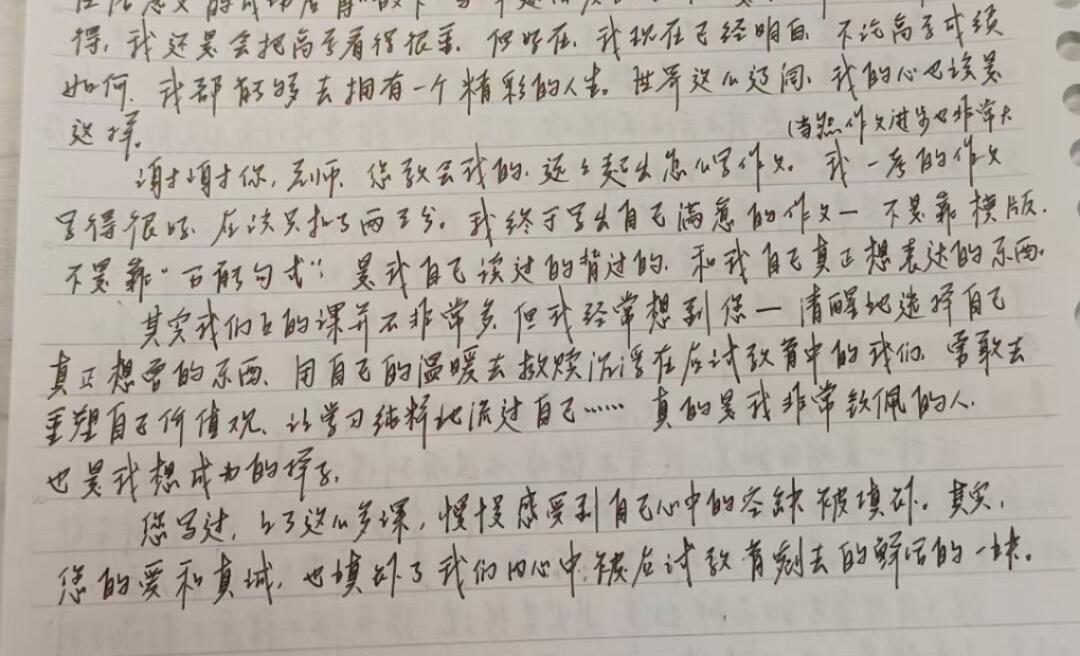 得,我还是会把高考看得很重。但好在,我现在已经明白,不论高考成绩
如何,我都能够去拥有一个精彩的人生。世界这么辽阔,我的心也该是
这样。
(当然作文进步也非常大
谢谢你,老师,您教会我的,远远超出怎么写作文。我一考的作文
写得很好,应该只扣了两三分。我终于写出自己满意的作文—不是靠模版,
不是靠“万能句式”,是我自己读过的背过的,和我自己真正想表达的东西。
其实我们上的课并不非常多,但我经常想到您—清醒地选择自己
真正想要的东西、用自己的温暖去救赎沉浮在应试教育中的我们、勇敢去
重塑自己价值观、让学习纯粹地流过自己……真的是我非常钦佩的人,
也是我想成为的样子。
您写过,上了这么多课,慢慢感受到自己心中的空缺被填补。其实,
您的爱和真诚,也填补了我们内心中被应试教育剜去的鲜活的一块。